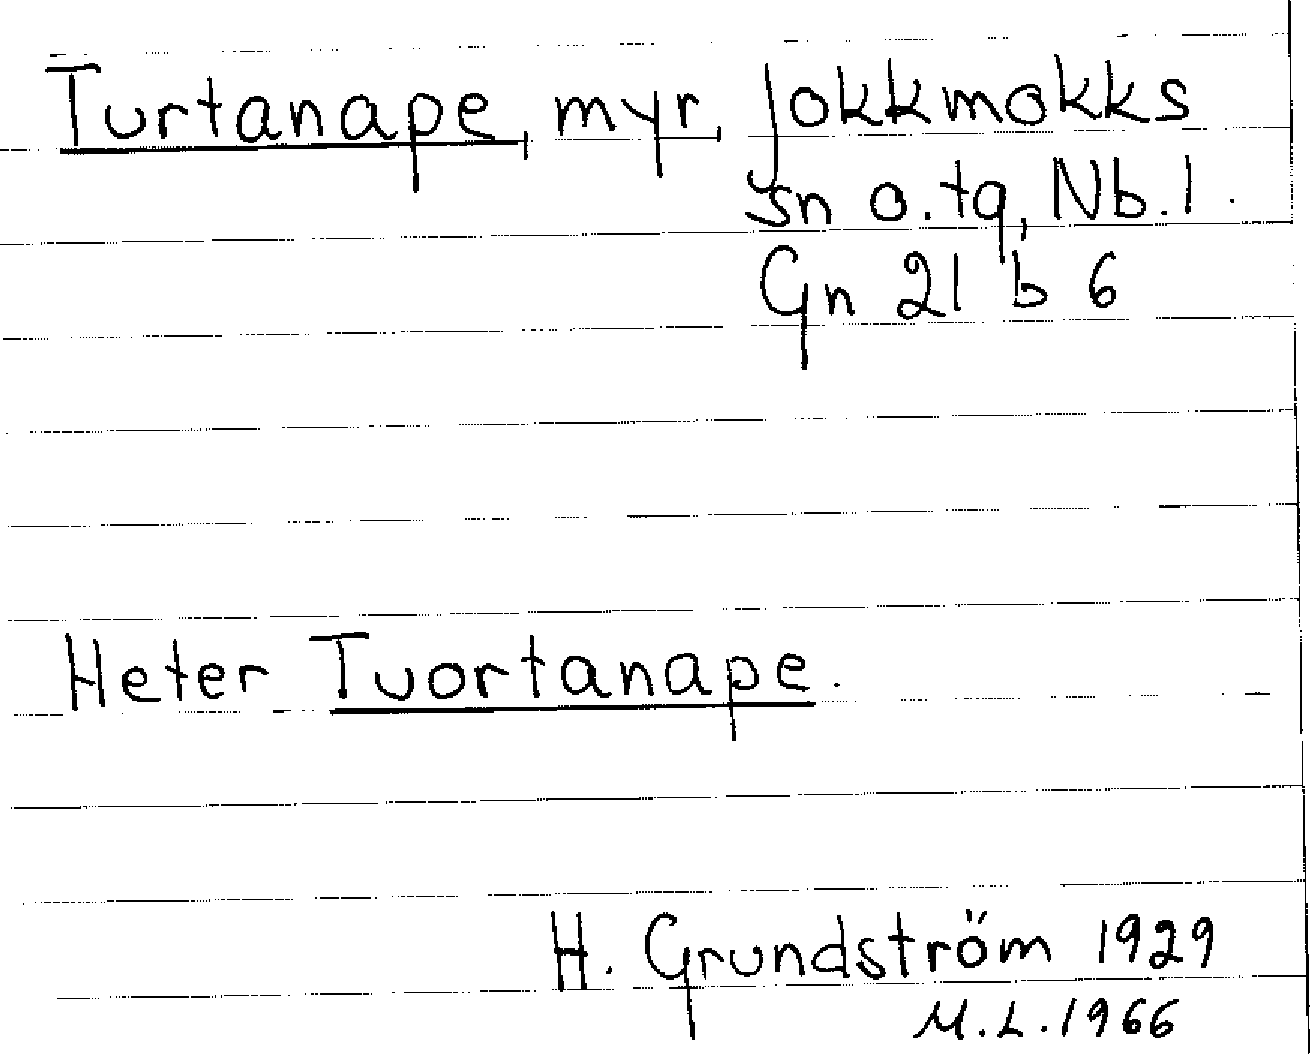 Turtanape, myr, Jokkmokks
sn o. tg, Nb. l.
Gn 21 b 6
Heter Tuortanape.
H. Grundström 1929
M.L. 1966